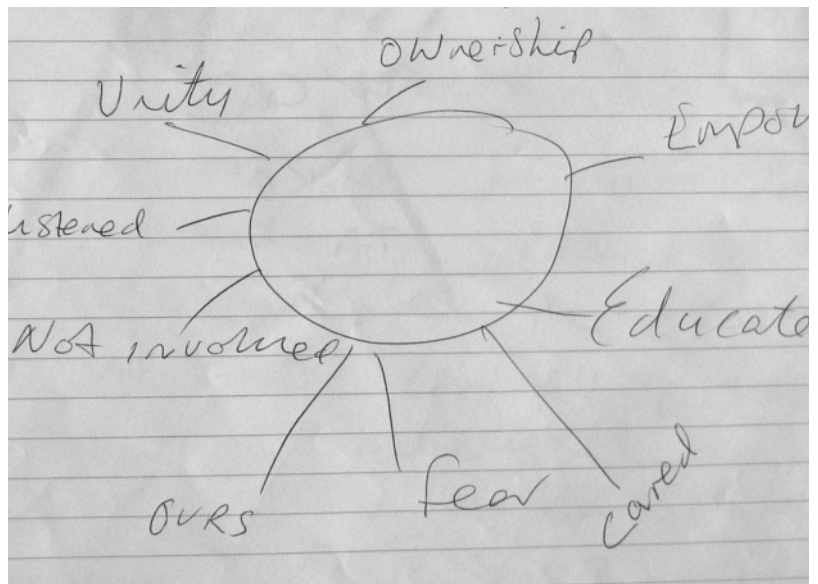 Ownership
Unity
Empow
istened
Educate
Not involved
Ours
fear
Cared